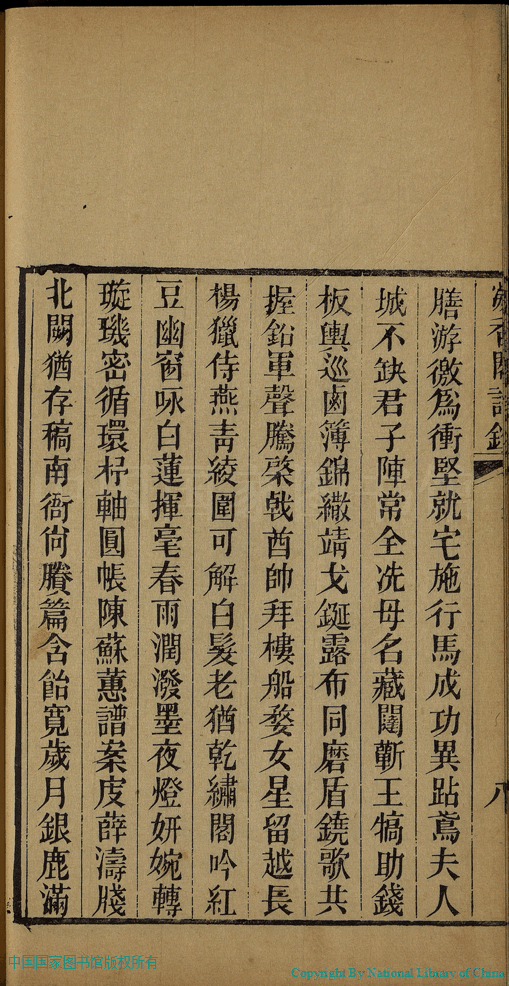 香閣詩鈔
八
膳游徼爲衝堅就宅施行馬成功異跕鳶夫人
城不缺君子陣常全冼母名藏闥蘄王犒助錢
板輿巡鹵簿錦繖靖戈鋋露布同磨盾鐃歌共
握鉛軍聲騰棨戟酋帥拜樓船婺女星留越長
楊獵侍燕靑綾圍可解白髮老猶乾繡閣吟紅
豆幽窗咏白蓮揮毫春雨潤潑墨夜燈妍婉轉
璇璣密循環杼軸圓帳陳蘇蕙譜案庋薛濤牋
北闕猶存稿南衙尙賸篇含飴寬歲月銀鹿滿
中国国家图书馆版权所有
Copyright By National Library of China